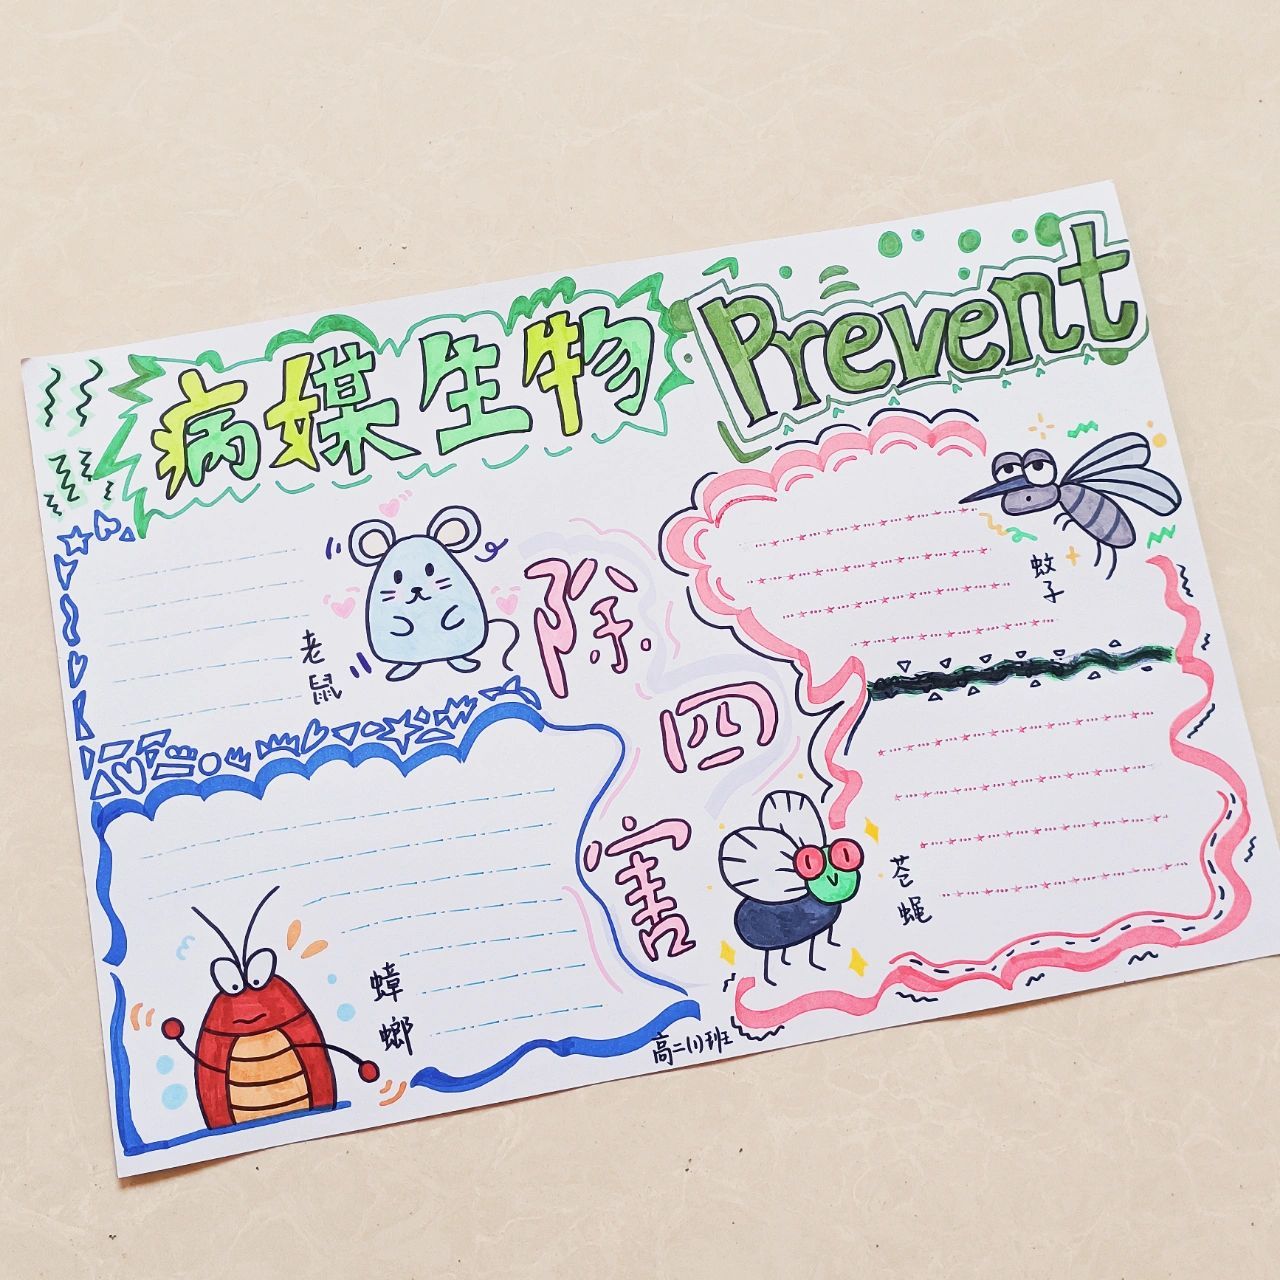 病媒生物
Prevent
老鼠
除四害
蚊子
苍蝇
蟑螂
高二(1)班